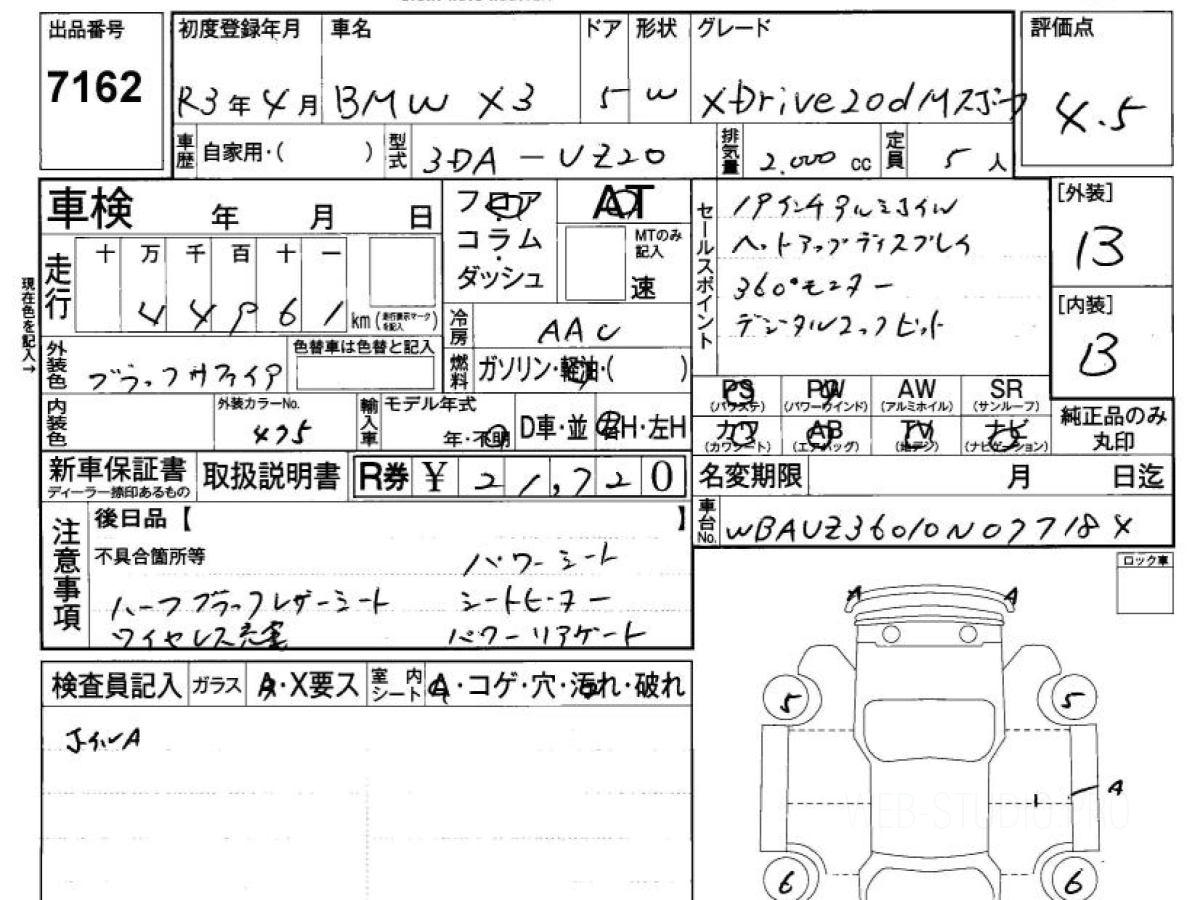 出品番号 初度登録年月 車名 ドア 形状 グレード 評価点
7162 R3年4月 BMW X3 5 W xDrive20d Mスポーツ 4.5
車歴 自家用・( ) 型式 3DA-UZ20 排気量 2.000 cc 定員 5 人
車検 年 月 日 フロア AT セールスポイント 19インチアルミホイル [外装]
コラム MTのみ記入 ヘットアップディスプレイ B
走行 十 万 千 百 十 一 ダッシュ 速 360°モニター [内装]
44961 km (走行表示マークを記入) 冷房 AAC デジタルコックピット B
現在色を記入→
外装色 ブラックサファイア 色替車は色替と記入 燃料 ガソリン・軽油・( )
PS (パワステ) PW (パワーウインド) AW (アルミホイル) SR (サンルーフ)
カワ (カワシート) AB (エアバッグ) TV (地デジ) ナビ (ナビゲーション) 純正品のみ丸印
内装色 外装カラーNo. 475 輸入車 モデル年式 年・不明 D車・並 右H・左H
新車保証書 ディーラー捺印あるもの 取扱説明書 R券 ¥ 21,720 名変期限 月 日迄
車台No. WBAUZ36010N07718X
注意事項 後日品【 】
不具合箇所等 パワーシート
ハーフブラックレザーシート シートヒーター
ワイヤレス充電 パワーリアゲート
ロック車
検査員記入 ガラス A・X要ス 室内シート A・コゲ・穴・汚れ・破れ
ホイルA
A A
5 5
A
WEB-STUDIO.PRO
6 6